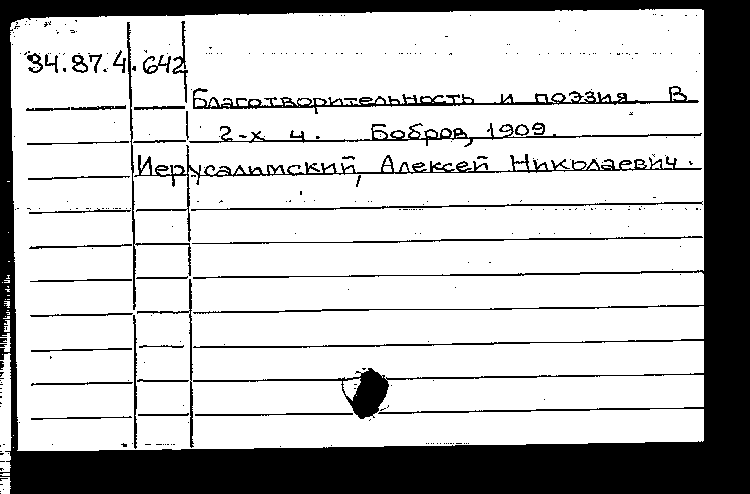 34.87.4.642
Благотворительность и поэзия В
2-х ч. Бобров, 1909.
Иерусалимский, Алексей Николаевич.